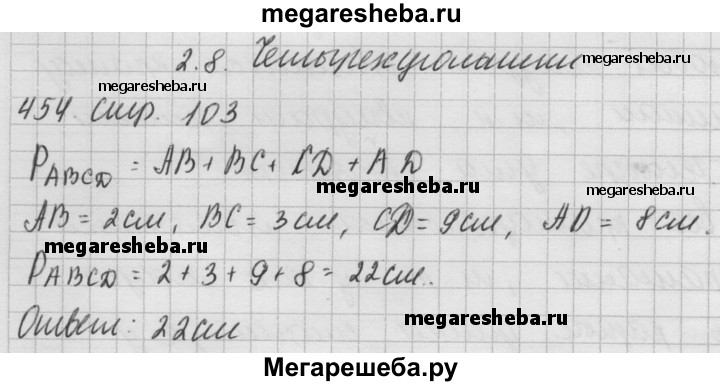 megaresheba.ru
2.8. Четырехугольники
megaresheba.ru
megaresheba.ru
454. стр. 103
P ABCD = AB + BC + CD + AD
megaresheba.ru
megaresheba.ru
AB = 2 см, BC = 3 см, CD = 9 см, AD = 8 см.
megaresheba.ru
P ABCD = 2 + 3 + 9 + 8 = 22 см.
Ответ: 22 см
megaresheba.ru
Мегарешеба.ру